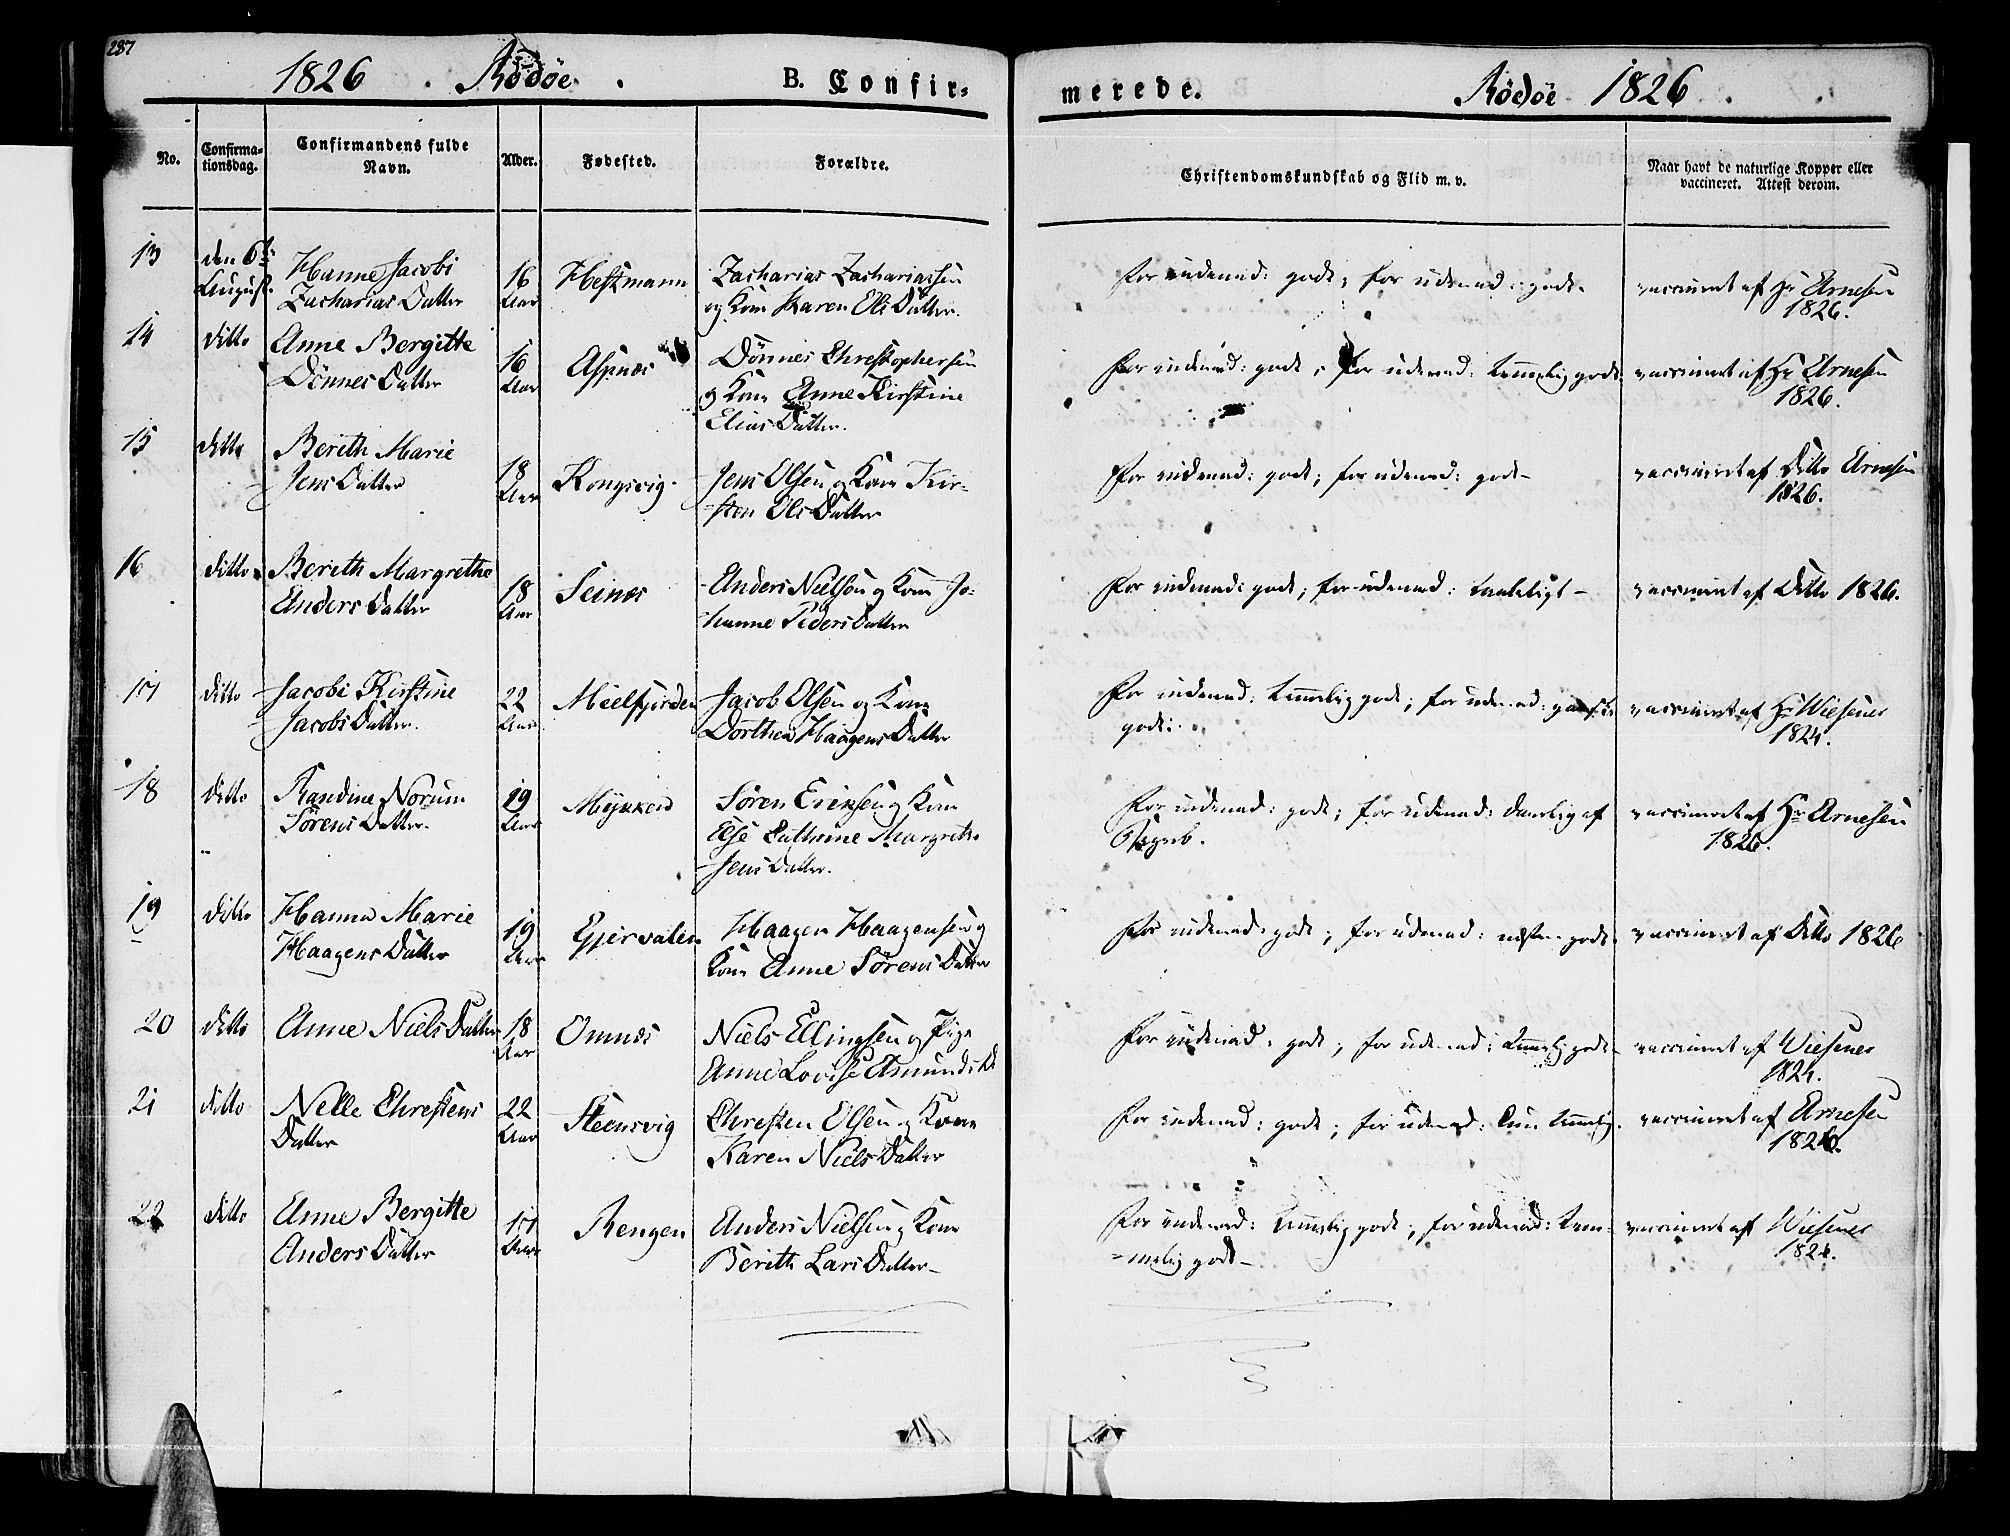 287
1826 . Rödöe .
B. Confir-
merede.
Rödöe 1826 .
No.
Confirma-
tionsdag.
Confirmandens fulde
Navn.
Alder.
Fødested.
Forældre.
Christendomskundskab og Flid m. v.
Naar havt de naturlige Kopper eller
vaccineret. Attest derom.
13 den 6te Hanne Jacobi 16 Hestmann Zacharias Zachariassen for indenad: godt; for udenad: godt. vaccineret af Hr Arnesen
August. Zacharias Datter Aar og Kone Karen Ols Datter. 1826.
14 ditto Anne Bergitte 16 Aspnæs Dönnes Christophersen for indenad: godt, for udenad: temmelig godt vaccineret af Hr Arnesen
Dönnes Datter Aar og Kone Anne Kirstine 1826.
Elias Datter.
15 ditto Berith Marie 18 Kongsvig. Jens Olsen og Kone Kir- for indenad: godt; for udenad: godt- vaccineret af Ditto Arnesen
Jens Datter Aar =sten Ols Datter 1826.
16 ditto Berith Margrethe 18 Seines Anders Nielsen og Kone Jo- for indenad: godt; for udenad: maadeligt- vaccineret af Ditto 1826.
Anders Datter Aar =hanne Peders Datter
17 ditto Jacobi Kirstine 22 Meelfjorden Jacob Olsen og Kone for indenad: temmelig godt; for udenad: ganske vaccineret af Hr Wiesener
Jacobs Datter. Aar Dorthea Haagens Datter godt: 1824.
18 ditto Randine Norum 19 Mynken Sören Eriksen og Kone for indenad: godt; for udenad: daarlig af vaccineret af Hr Arnesen
Sörens Datter. Aar Else Cathrine Margrethe Begreb. 1826.
Jens Datter.
19 ditto Hanna Marie 19 Gjervalen Haagen Haagensen og for indenad: godt; for udenad: næsten godt. vaccineret af Ditto 1826
Haagens Datter Aar Kone Anne Sörens Datter
20 ditto Anne Niels Datter 18 Omnæs Niels Ellingsen og Pige for indenad: godt; for udenad: temmelig godt- vaccineret af Wiesener
Aar Anne Lovise Amunds D. 1824.
21 ditto Nelle Christens 22 Steensvig Christen Olsen og Kone for indenad: godt; for udenad: kun temmelig. vaccineret af Arnesen
Datter Aar Karen Niels Datter 1826.
22 ditto Anne Bergitte 17 Rengen Anders Nielsen og Kone for indenad: temmelig godt; for udenad: tem- vaccineret af Wiesener
Anders Datter Aar Berith Lars Datter- =melig godt- 1824.